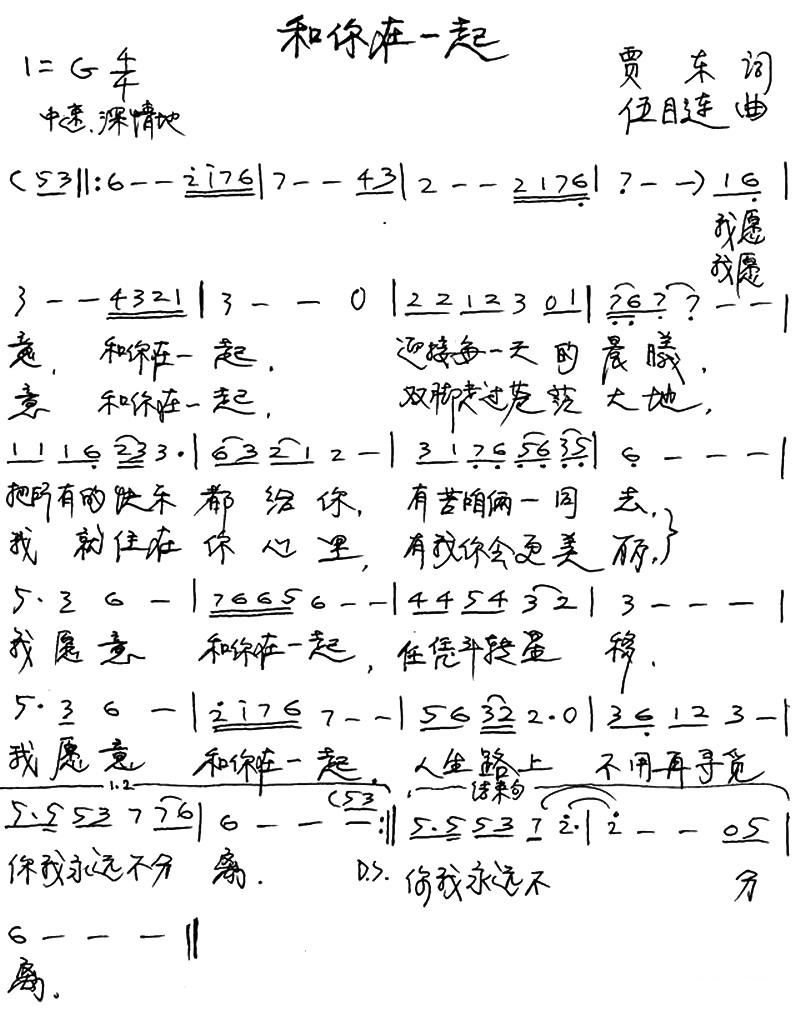 和你在一起
1=G 4/4
贾 东 词
中速、深情地
伍目连 曲
(53‖:6--2̇1̇76|7--43|2--2176̣|7̣--)16̣|
我愿
我愿
3--4321|3--0|2212301|7̣6̣7̣7̣--|
意, 和你在一起, 迎接每一天的晨曦,
意 和你在一起, 双脚走过苍茫大地,
1116̣2̣33·|6̣3212-|317̣6̣5̣6̣3̣5̣|6̣---|
把所有的快乐都给你, 有苦咱俩一同去,}
我就住在你心里, 有我你会更美丽,}
5·36-|76656--|445432|3---|
我愿意 和你在一起, 任凭斗转星移.
5·36-|2̇1̇767--|56322·0|36̣123-|
我愿意 和你在一起, 人生路上 不用再寻觅
1.2 结束句
5·553776|6---(53:‖5·55372̇·|2̇--05|
你我永远不分离. D.S. 你我永远不 分
6---‖
离.